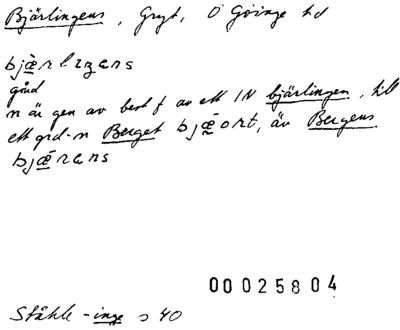 Bjärlingens, Gryt, Ö Göinge hd
bjæ̀rlıŋens
gård
n är gen av best f av ett IN bjärlingen, till
ett grd-n Berget bjæ̀ət, äv Bergens
bjæ̀rəns
00025804
Ståhle -inge s 40